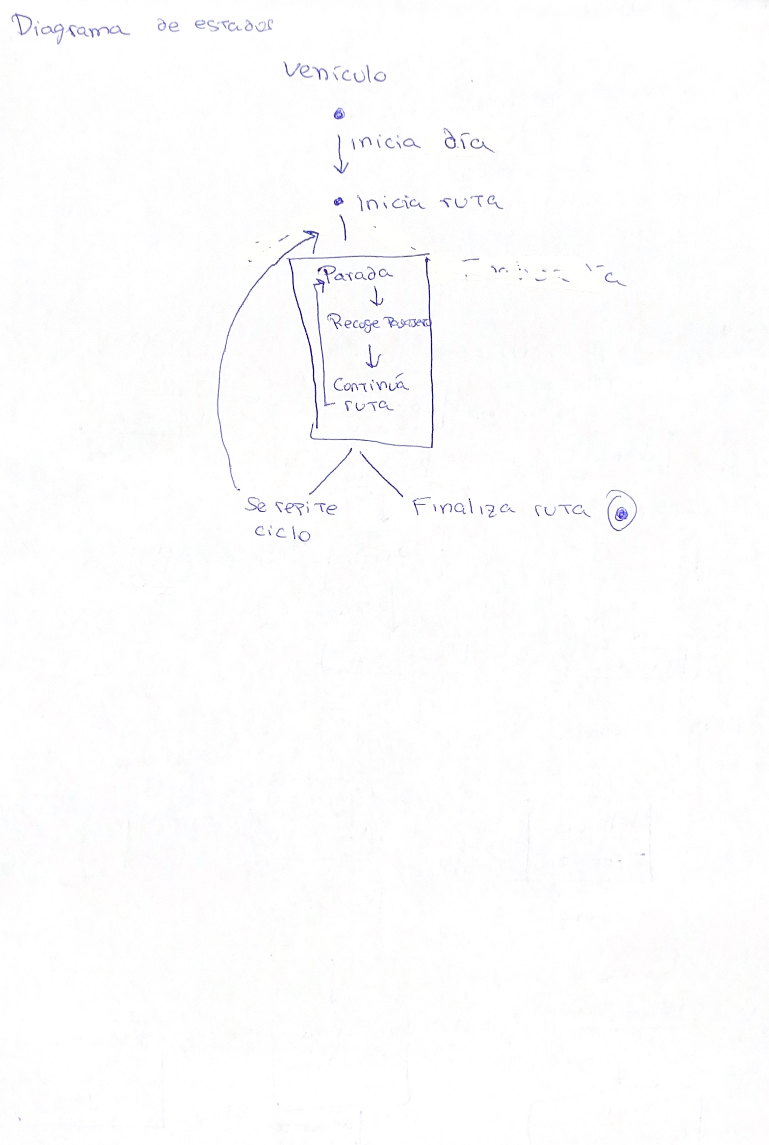 Diagrama de estados
Vehículo
inicia día
Inicia ruta
Parada
Recoge
Continúa
ruta
Se repite
ciclo
Finaliza ruta